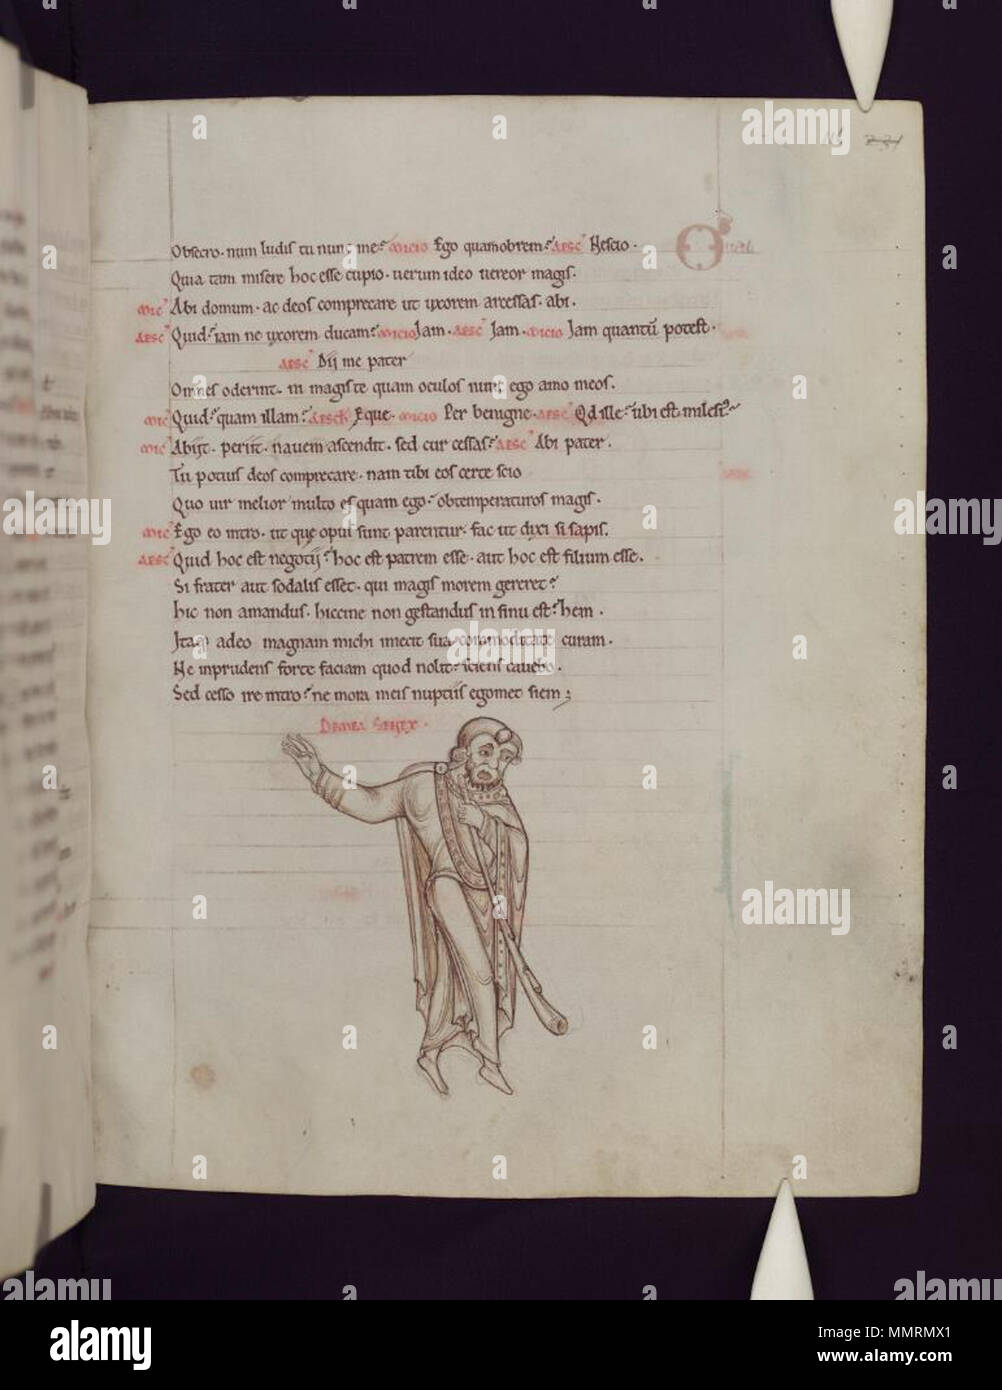 Obsecro · num ludis tu nunc me? MICIO Ego quamobrem? AESC Nescio ·
Quia tam misere hoc esse cupio · uerum ideo uereor magis.
MIC Abi domum · ac deos comprecare ut uxorem arcessas · abi.
AESC Quid? iam ne uxorem ducam? MICIO Jam · AESC Jam · MICIO Jam quantū potest ·
AESC Dij me pater
Omnes oderint · ni magis te quam oculos nunc ego amo meos.
MIC Quid? quam illam? AESCH Eque · MICIO Per benigne · AESC Qd ille? ubi est milesi?
MIC Abijt · perijt · nauem ascendit · sed cur cessas? AESC Abi pater.
Tu potius deos comprecare · nam tibi eos certe scio
Quo uir melior multo es quam ego? obtemperaturos magis.
MIC Ego eo intro · ut que opus sunt parentur · fac ut dixi si sapis.
AESC Quid hoc est negotij? hoc est patrem esse · aut hoc est filium esse.
Si frater aut sodalis esset · qui magis morem gereret?
hic non amandus · hiccine non gestandus in sinu est? hem.
Itaq adeo magnam michi iniecit sua commoditate curam.
Ne inprudens forte faciam quod nolit? sciens cauebo.
Sed cesso ire intro? ne mora meis nuptiis egomet siem;
DEMEA SENEX ·
alamy
Image ID: MMRMX1
www.alamy.com